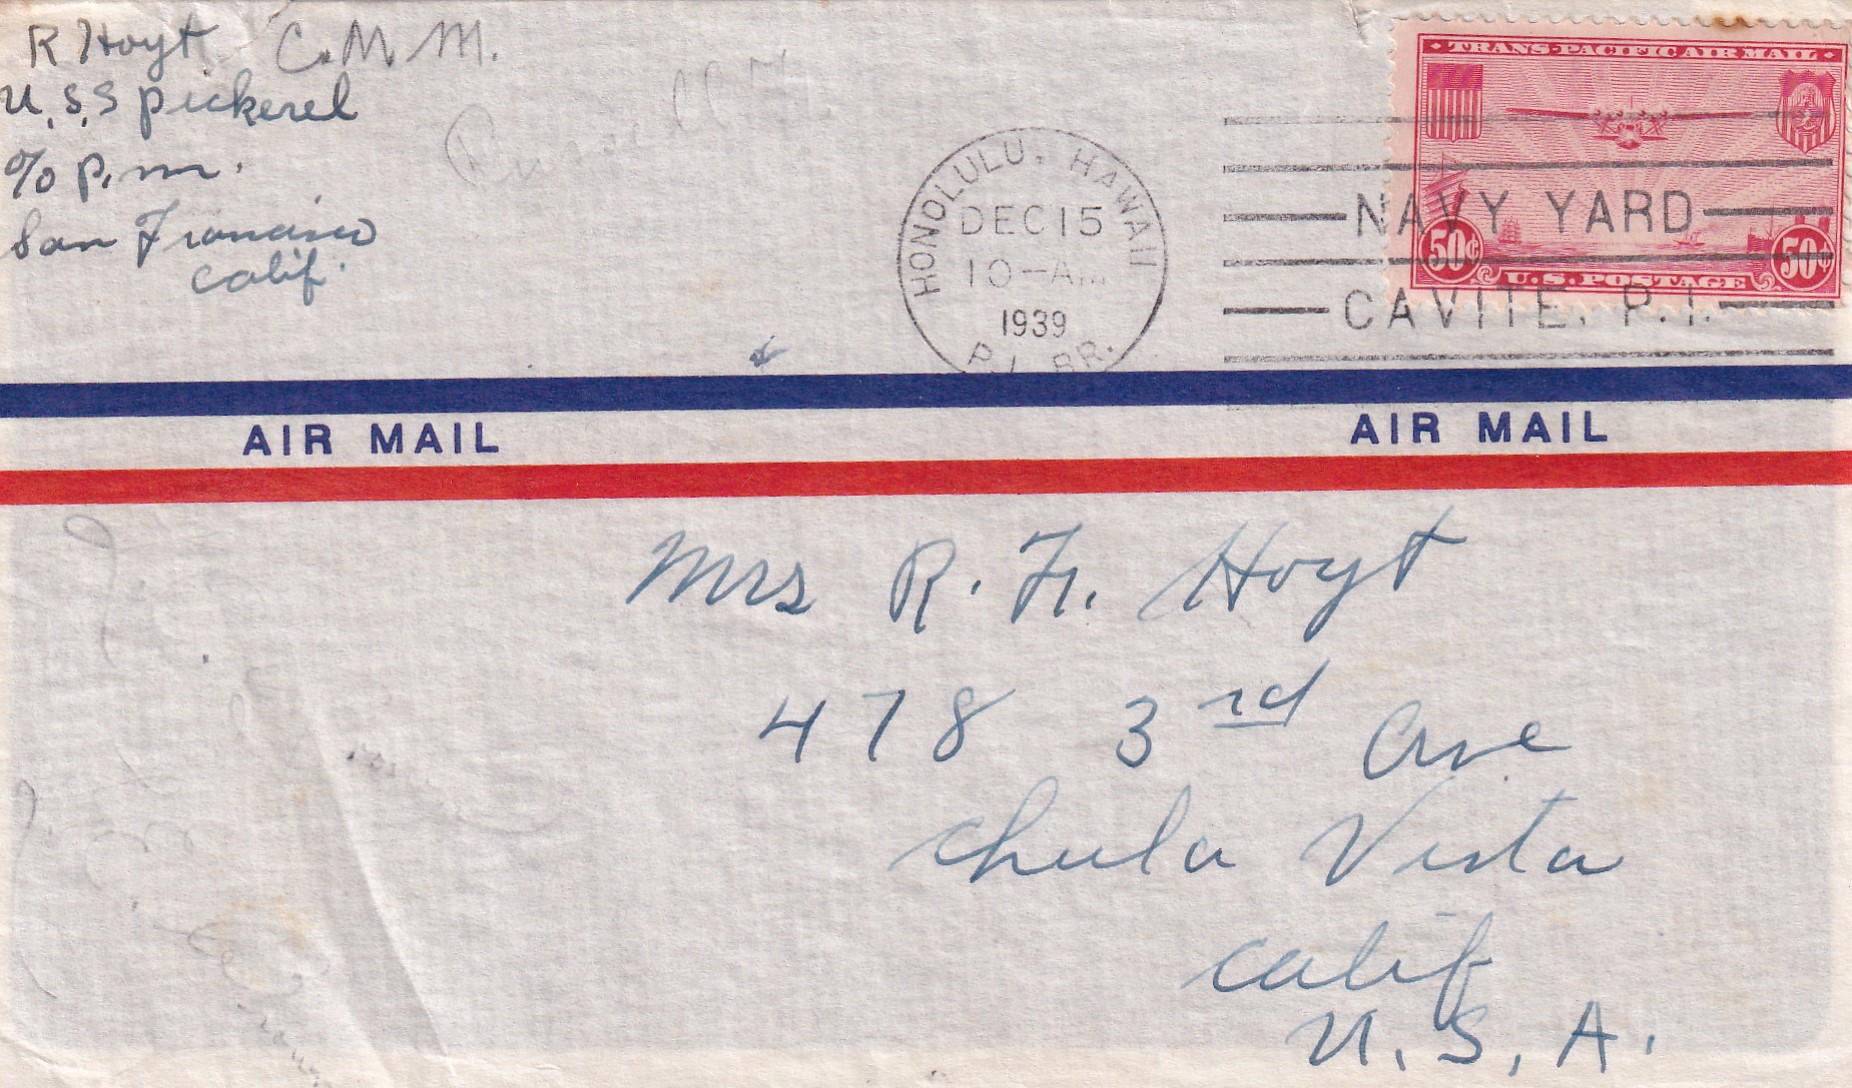 R Hoyt C.M.M.
U.S.S Pickerel
c/o P.M.
San Francisco
Calif.
HONOLULU, HAWAII
DEC 15
10-A
1939
P.I. BR.
TRANS-PACIFIC AIR MAIL
50¢ 50¢
U.S. POSTAGE
NAVY YARD
CAVITE, P.I.
AIR MAIL AIR MAIL
Mrs R. F. Hoyt
478 3rd Ave
Chula Vista
Calif
U.S.A.